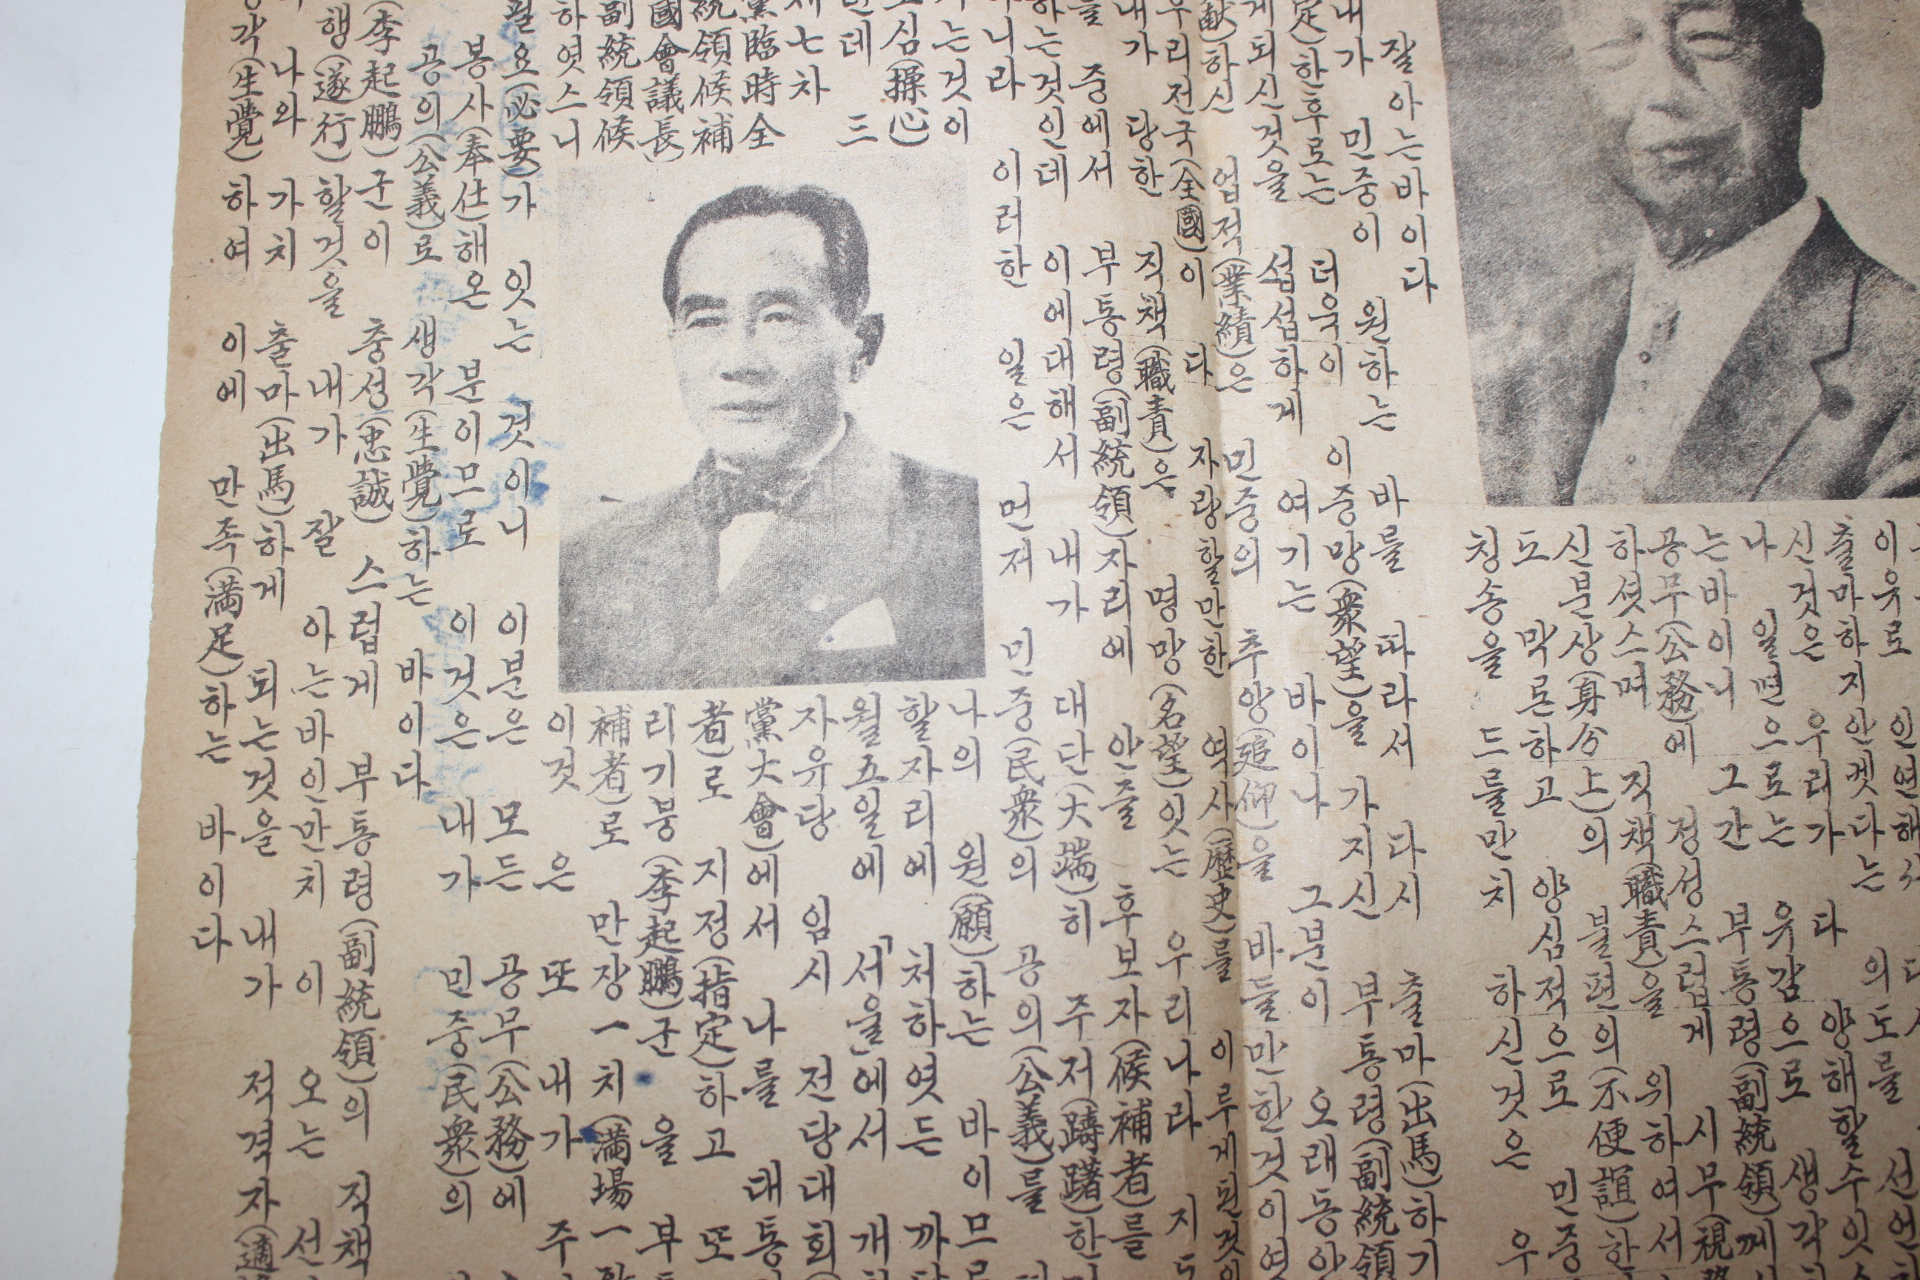 이유로 인연해서
출마하지안켓다는 의도를 선언
신것은 우리가 다 양해할수잇
나 일면으로는 유감으로 생각
는바이니 그간 부통령(副統領)께
공무(公務)에 정성스럽게 시무(視
하셧스며 직책(職責)을 위하여서
신분상(身分上)의 불편의(不便誼)한
도 막론하고 양심적으로 민중
칭송을 드를만치 하신것은 우
잘아는바이다
내가 민중이 원하는 바를 따라서 다시 출마(出馬)하기
定)한후로는 더욱이 이중망(衆望)을 가지신 부통령(副統領
게되신것을 섭섭하게 여기는 바이나 그분이 오래동안
献)하신 업적(業績)은 민중의 추앙(追仰)을 바들만한것이였
우리전국(全國)이 다 자랑할만한 역사(歷史)를 이루게된것의
내가 당한 직책(職責)은 명망(名望)잇는 우리나라 지도
를 중에서 부통령(副統領)자리에 안즐 후보자(候補者)를
하는것인데 이에대해서 내가 대단(大端)히 주저(躊躇)한
아니라 이러한 일은 먼저 민중(民衆)의 공의(公義)를
는것이 나의 원(願)하는 바이므로
심(操心)할자리에 처하엿든 까
데 三월五일에 「서울」에서 개
七차 자유당 임시 전당대회(
黨臨時全黨大會)에서 나를 대통
統領候補者)로 지정(指定)하고 또
國會議長)리기붕(李起鵬)군 을 부
副統領候補者)로 만장一치(満場一
하엿스니 이것은 또 내가 주
필요(必要)가 잇는 것이니 이분은 모든 공무(公務)에
봉사(奉仕)해온 분이므로 이것은 내가 민중(民衆)의
공의(公義)로 생각(生覺)하는 바이다
(李起鵬)군이 충성(忠誠)스럽게 부통령(副統領)의 직책
행(遂行)할것을 내가 잘 아는바인만치 이 오는 선
나와 가치 출마(出馬)하게 되는것을 내가 적격자(適
각(生覺)하여 이에 만족(満足)하는 바이다